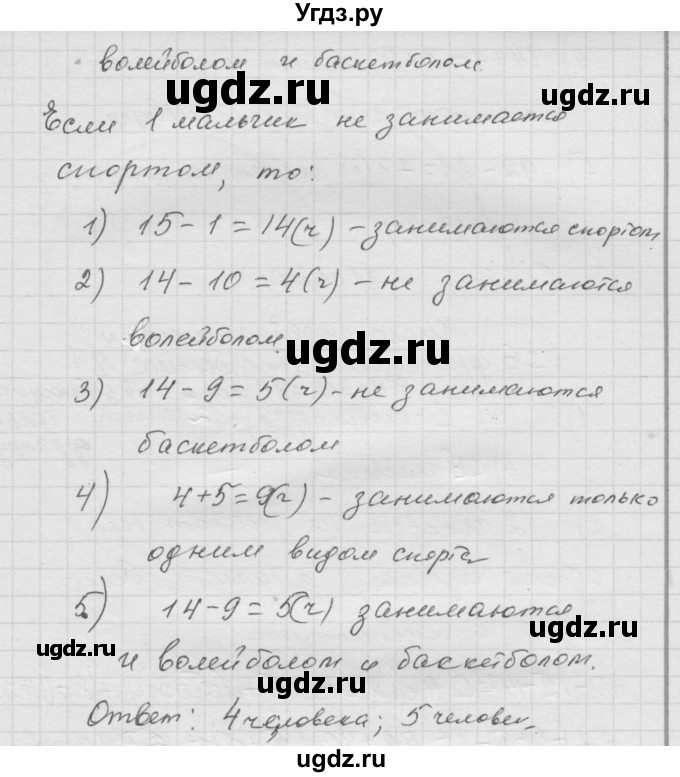 Угдз.ру
волейболом и баскетболом.
ugdz.ru
Если 1 мальчик не занимается
спортом, то:
ugdz.ru
1) 15 - 1 = 14(ч) - занимаются спортом
2) 14 - 10 = 4(ч) - не занимаются
волейболом.
ugdz.ru
3) 14 - 9 = 5(ч) - не занимаются
баскетболом
4) 4 + 5 = 9(ч) - занимаются только
одним видом спорта
5) 14 - 9 = 5(ч) занимаются
ugdz.ru
ugdz.ru
и волейболом и баскетболом.
ugdz.ru
Ответ: 4 человека; 5 человек.
ugdz.ru
ugdz.ru